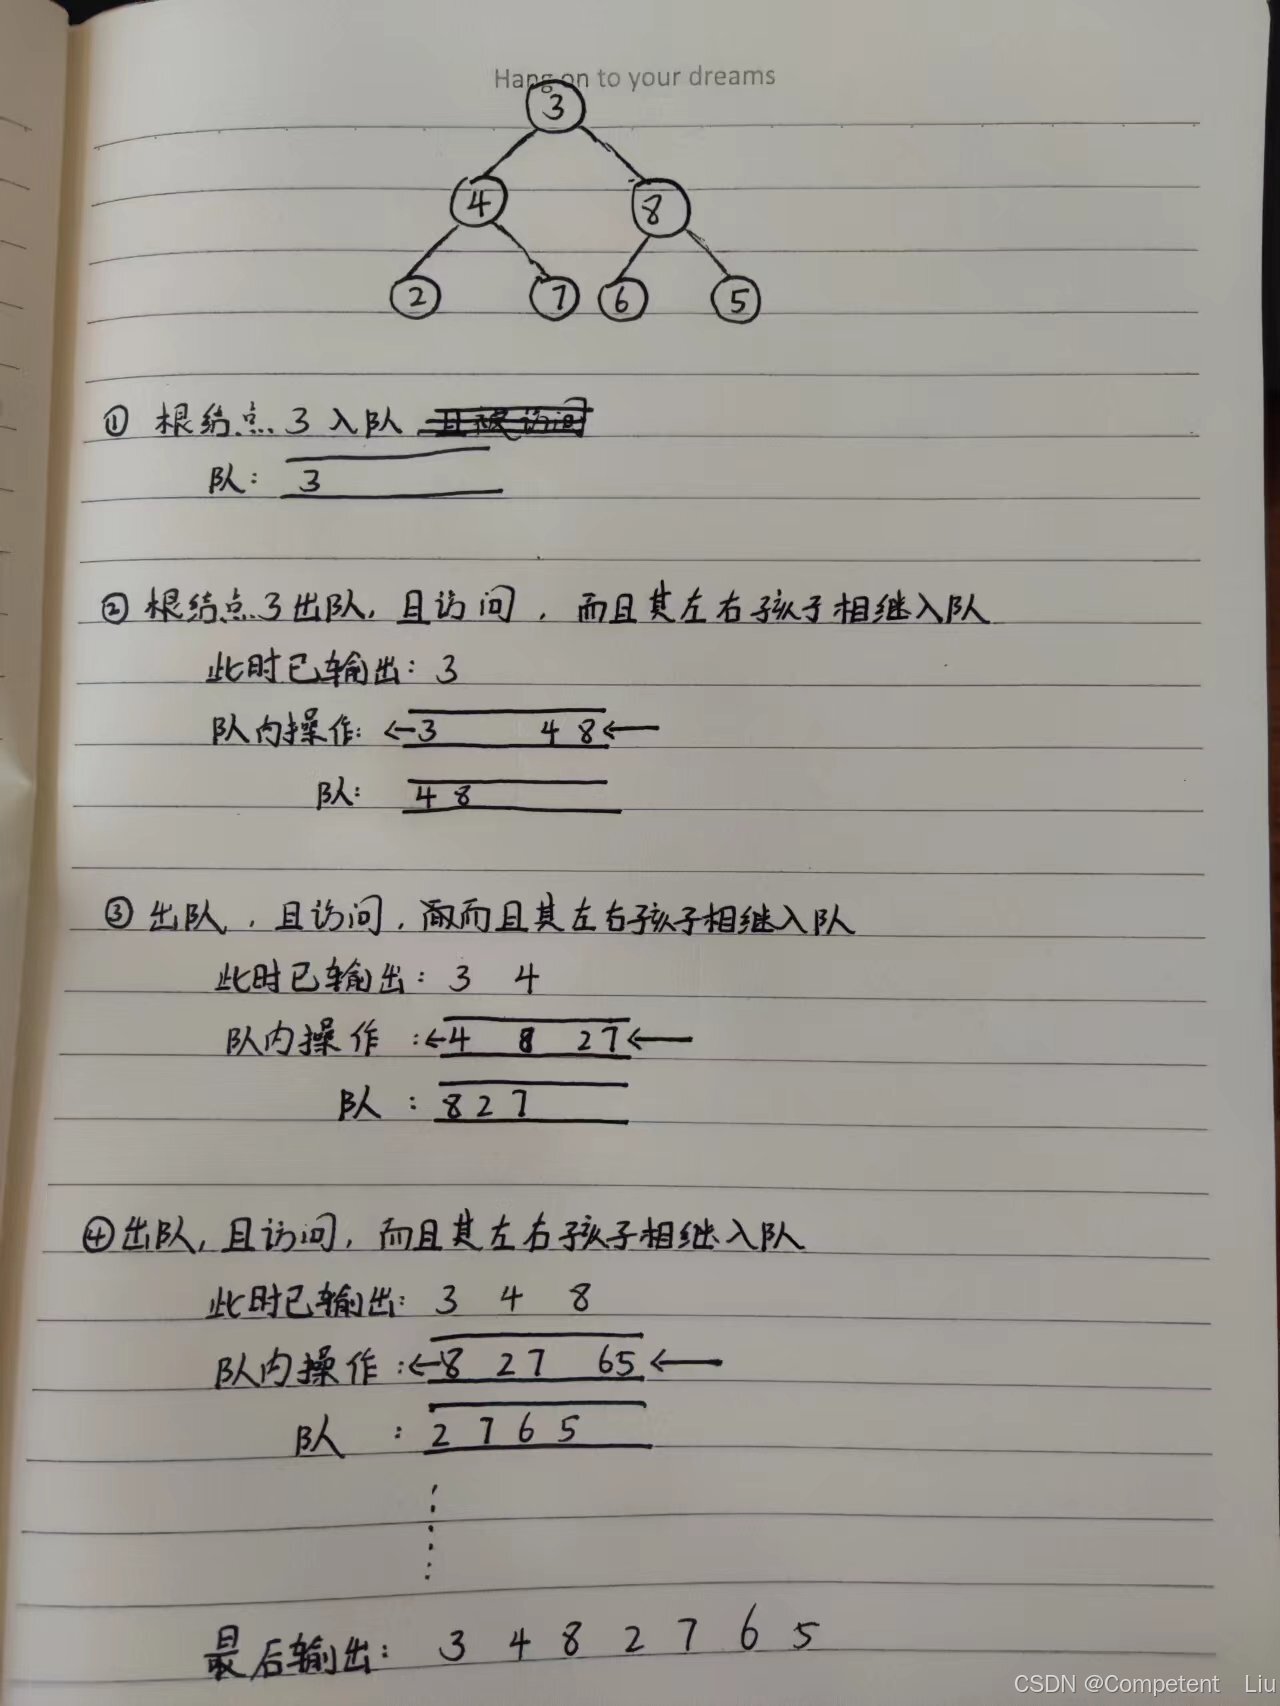 Hang on to your dreams
3
4 8
2 7 6 5
① 根结点3入队
队: 3
② 根结点3出队, 且访问, 而且其左右孩子相继入队
此时已输出: 3
队内操作: ←3 4 8←
队: 4 8
③ 出队, 且访问, 而且其左右孩子相继入队
此时已输出: 3 4
队内操作: ←4 8 2 7←
队: 8 2 7
④ 出队, 且访问, 而且其左右孩子相继入队
此时已输出: 3 4 8
队内操作: ←8 2 7 6 5←
队: 2 7 6 5
最后输出: 3 4 8 2 7 6 5
CSDN @Competent Liu